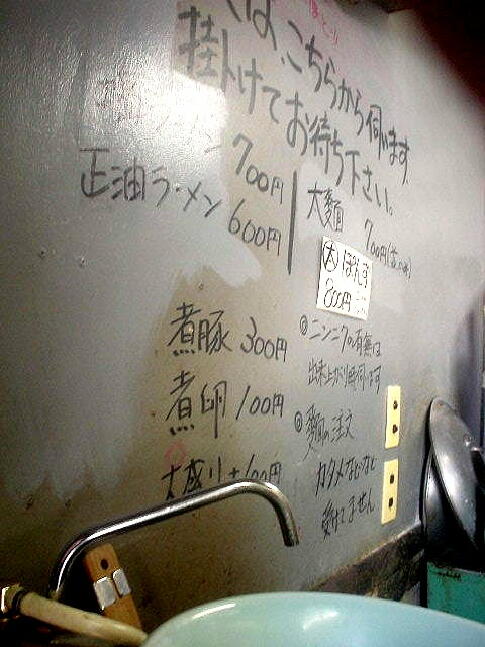 は、こちらから伺います。
掛けてお待ち下さい。
700円
正油ラーメン 600円
大麺 700円
大 ぽんず
800円
煮豚 300円
煮卵 100円
大盛り+100円
◎ニンニクの有無は
出来上がり時伺います
◎麺の注文
カタメなどなど
受けてません